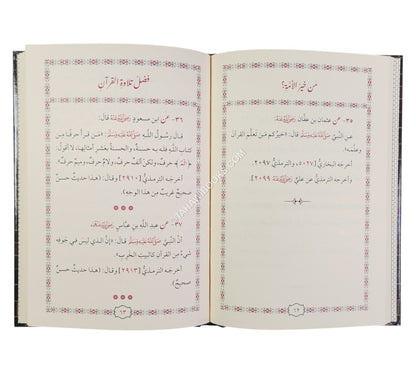 من خيرُ الأمّة؟
٣٥- عن عثمان بن عفَّان رَضِيَ اللَّهُ عَنْهُ:
عن النَّبي صَلَّى اللَّهُ عَلَيْهِ وَسَلَّمَ قال: «خيرُكم مَن تعلَّم القرآن
وعلَّمه»
أخرجه البخاريُّ [٥٠٢٧]، والترمذيُّ ٢٠٩٧
وأخرجه الترمذيُّ عن عليٍّ رَضِيَ اللَّهُ عَنْهُ [٢٠٩٩]
٦٢
فضل تلاوة القرآن
٣٦- عن ابن مسعودٍ رَضِيَ اللَّهُ عَنْهُ قال:
قال رسولُ اللَّه صَلَّى اللَّهُ عَلَيْهِ وَسَلَّمَ: «مَن قرأ حرفًا مِن
كتاب اللَّه فله به حسنةٌ، والحسنةُ بعشر أمثالها، لا أقول:
﴿الٓمٓ﴾ حرفٌ، ولكن ألفٌ حرفٌ، ولامٌ حرفٌ، وميمٌ حرفٌ».
أخرجه الترمذيُّ [٢٩١٠] وقال: (هذا حديثٌ حسنٌ
صحيحٌ غريبٌ مِن هذا الوجه).
٣٧- عن عبد اللَّه بن عبَّاسٍ رَضِيَ اللَّهُ عَنْهُمَا:
أنَّ النَّبيَّ صَلَّى اللَّهُ عَلَيْهِ وَسَلَّمَ قال: «إنَّ الذي ليس في جوفه
شيءٌ مِن القرآن كالبيت الخرِب»
أخرجه الترمذيُّ [٢٩١٣] وقال: (هذا حديثٌ حسنٌ
صحيحٌ).
٦٣